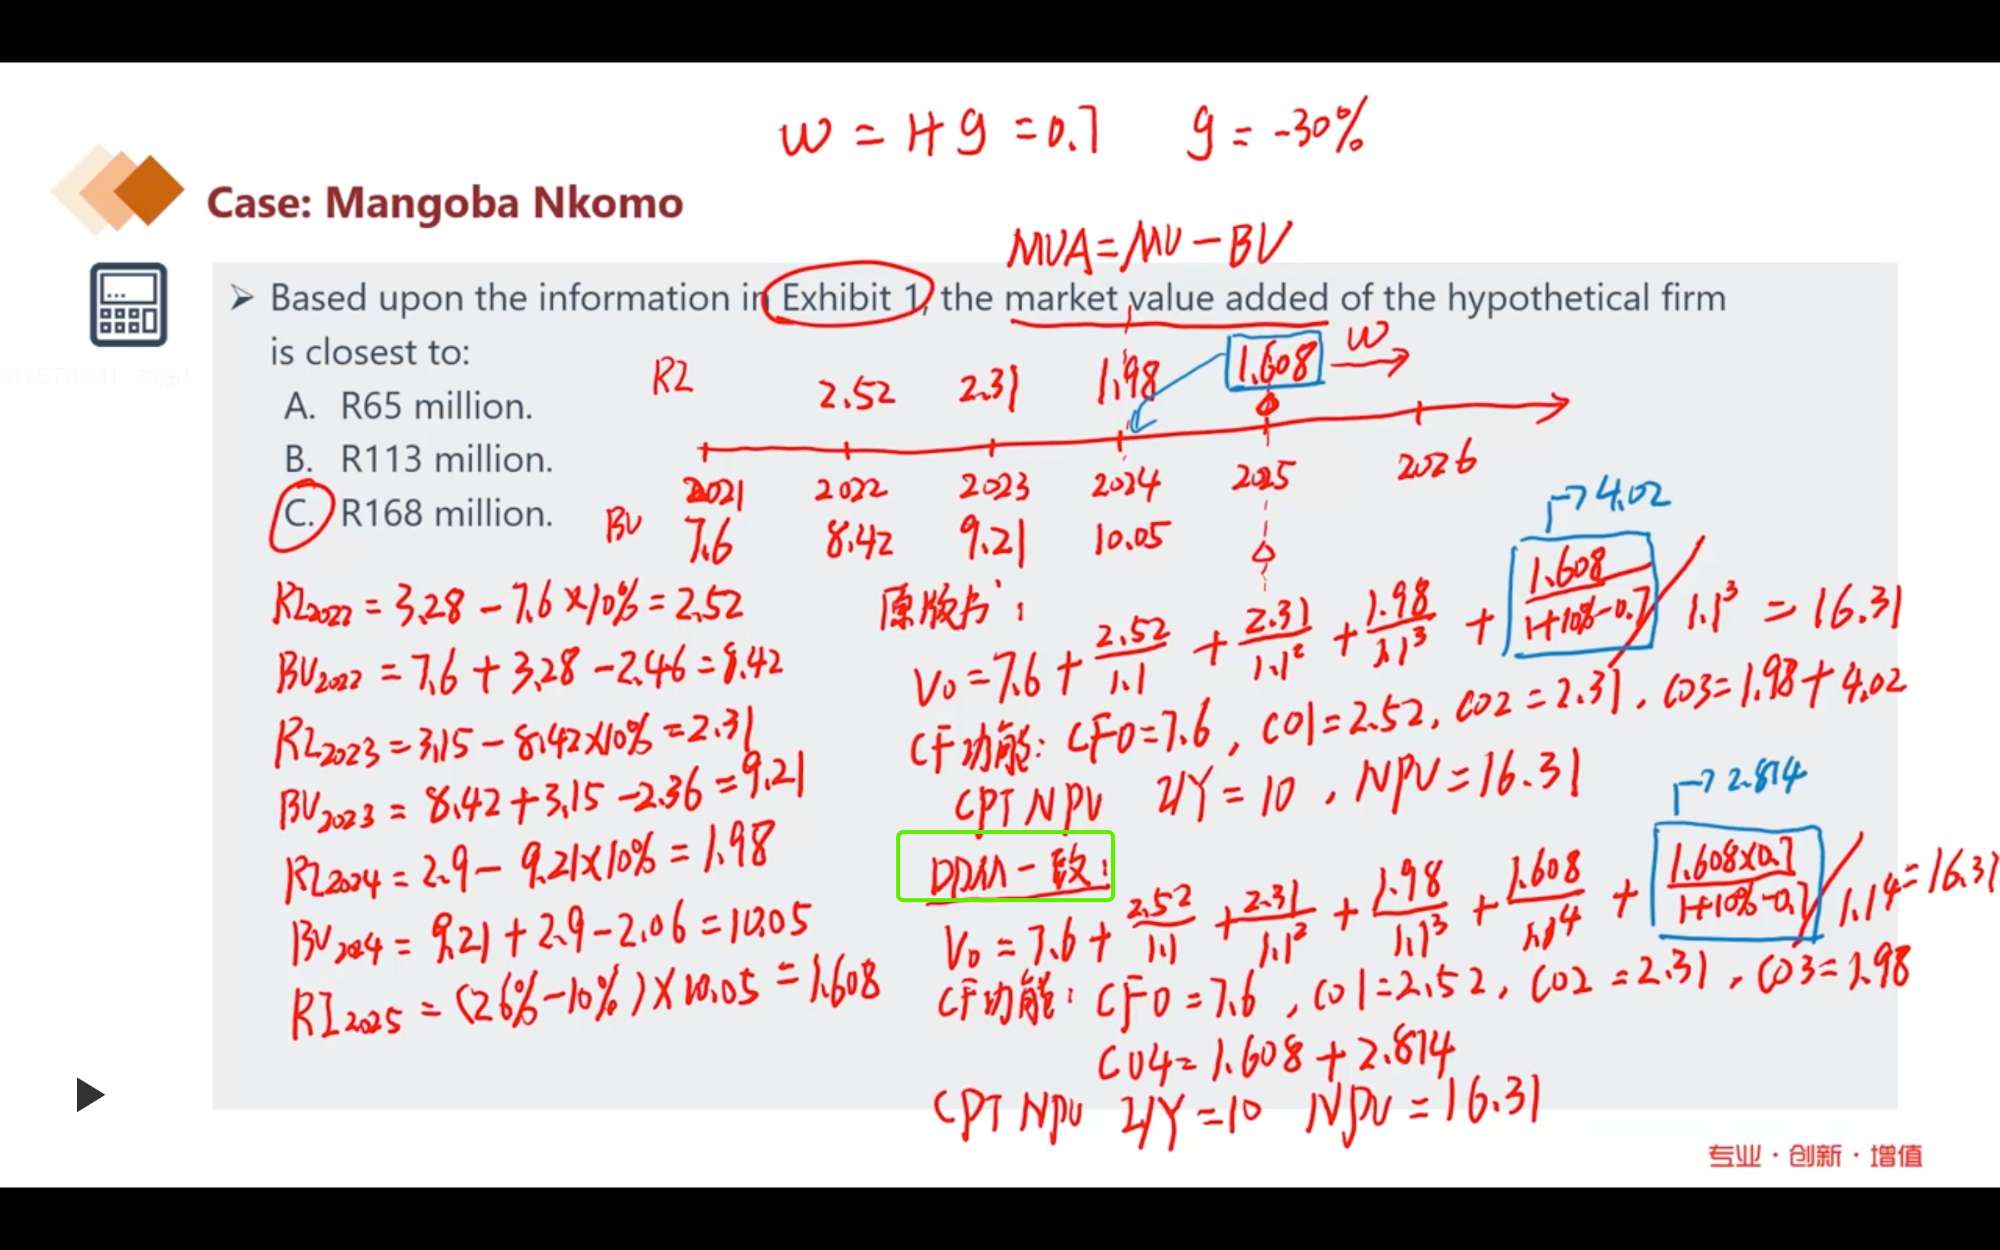 W = 1+g = 0.7 g = -30%
Case: Mangoba Nkomo
MVA = MV - BV
Based upon the information in Exhibit 1, the market value added of the hypothetical firm
is closest to:
A. R65 million.
B. R113 million.
C. R168 million.
RI 2.52 2.31 1.98 1.608 W
2021 2022 2023 2024 2025 2026
BV 7.6 8.42 9.21 10.05
→4.02
RI2022 = 3.28 - 7.6×10% = 2.52
BV2022 = 7.6 + 3.28 - 2.46 = 8.42
RI2023 = 3.15 - 8.42×10% = 2.31
BV2023 = 8.42 + 3.15 - 2.36 = 9.21
RI2024 = 2.9 - 9.21×10% = 1.98
BV2024 = 9.21 + 2.9 - 2.06 = 10.05
RI2025 = (26% - 10%) × 10.05 = 1.608
原版书:
V0 = 7.6 + 2.52/1.1 + 2.31/1.1² + 1.98/1.1³ + 1.608/1+10%-0.7 / 1.1³ = 16.31
CF功能: CF0 = 7.6, C01 = 2.52, C02 = 2.31, C03 = 1.98 + 4.02
CPT NPV I/Y = 10, NPV = 16.31
→2.814
DDM一致:
V0 = 7.6 + 2.52/1.1 + 2.31/1.1² + 1.98/1.1³ + 1.608/1.1⁴ + 1.608×0.7/1+10%-0.7 / 1.1⁴ = 16.31
CF功能: CF0 = 7.6, C01 = 2.52, C02 = 2.31, C03 = 1.98
C04 = 1.608 + 2.814
CPT NPV I/Y = 10 NPV = 16.31
专业·创新·增值